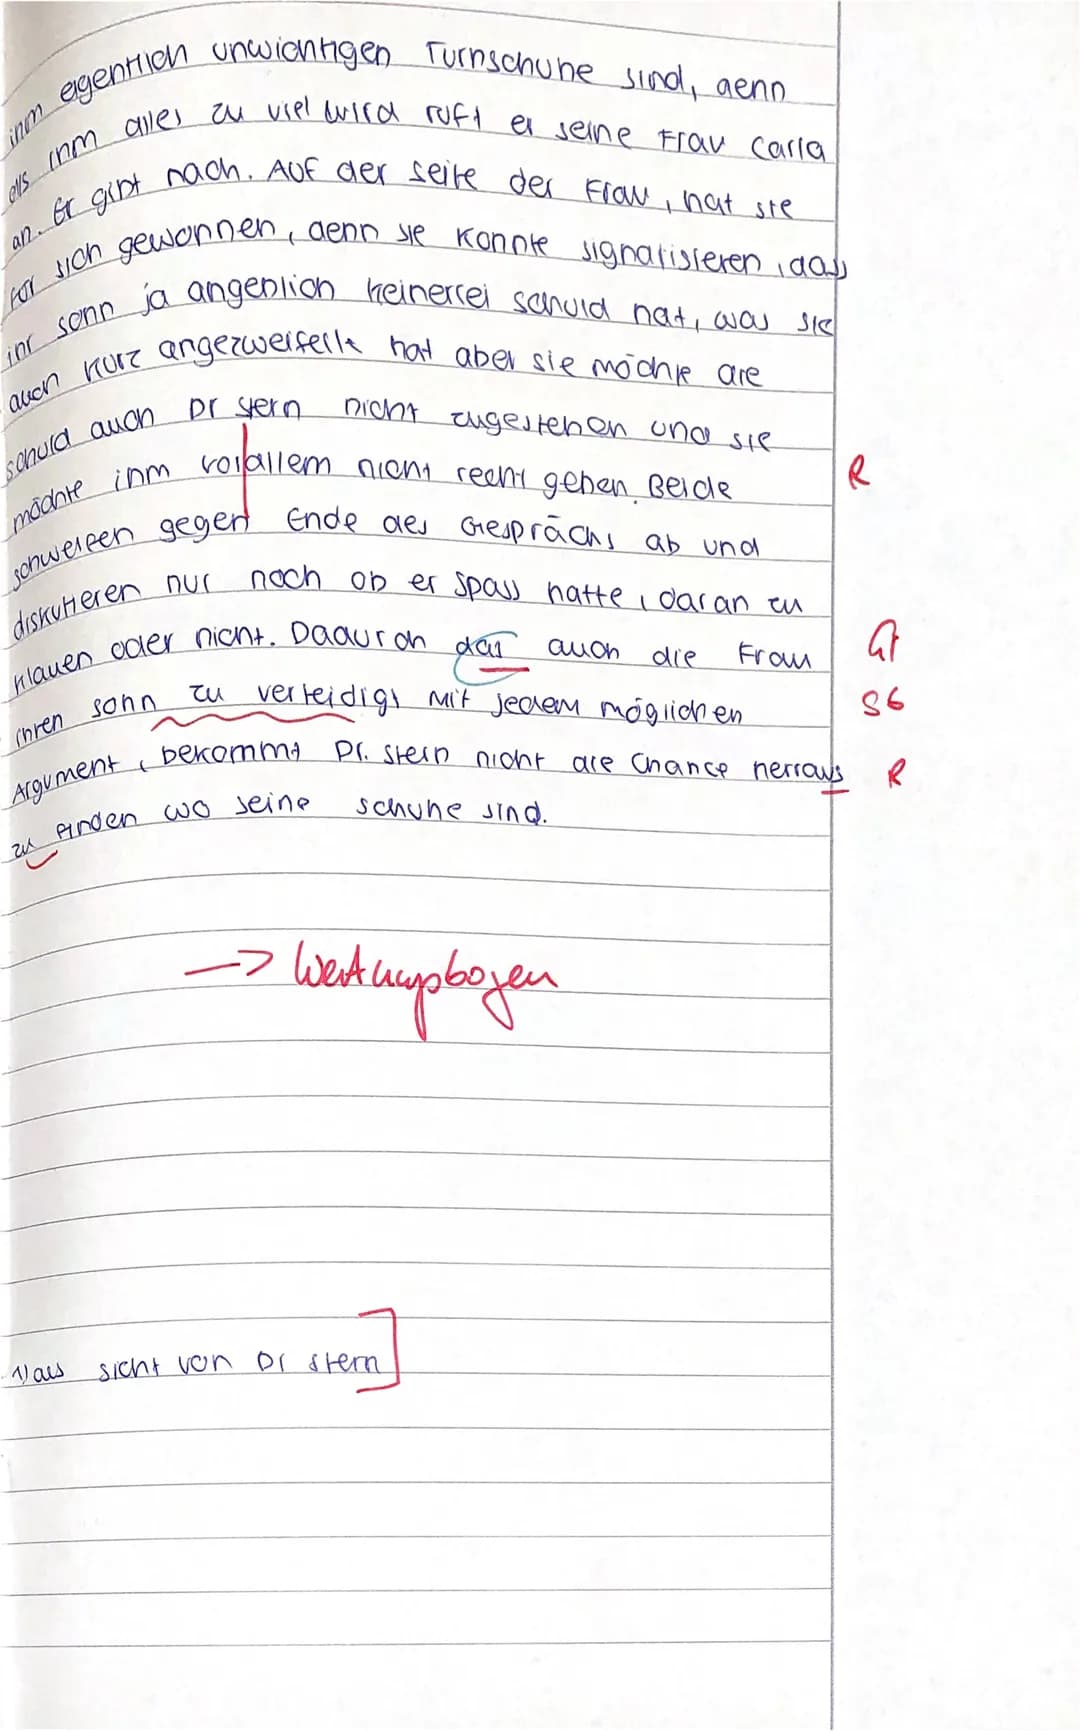 ihm eigentlich unwichtigen Turnschuhe sind, denn
als ihm alles zu viel wird ruft er seine Frau Carla
an. Er gibt nach. Auf der Seite der Frau, hat sie
für sich gewonnen, denn sie konnte signalisieren, dass
ihr sohn ja angeblich keinerlei schuld hat, was sie
auch kurz angezweifelt hat aber sie möchte die
schuld auch Dr Stern nicht zugestehen und sie
möchte ihm vorallem nicht recht geben. Beide
R
schweifen gegen Ende des Gesprächs ab und
diskutieren nur noch ob er spass hatte, daran zu
klauen oder nicht. Dadurch das auch die Frau
Gr
ihren sohn zu verteidigt mit jedem möglichen
Sb
Argument, bekommt Dr. Stern nicht die Chance herraus
R
zu finden wo seine schuhe sind.
-> Wertungsbogen
1) aus sicht von Dr Stern]